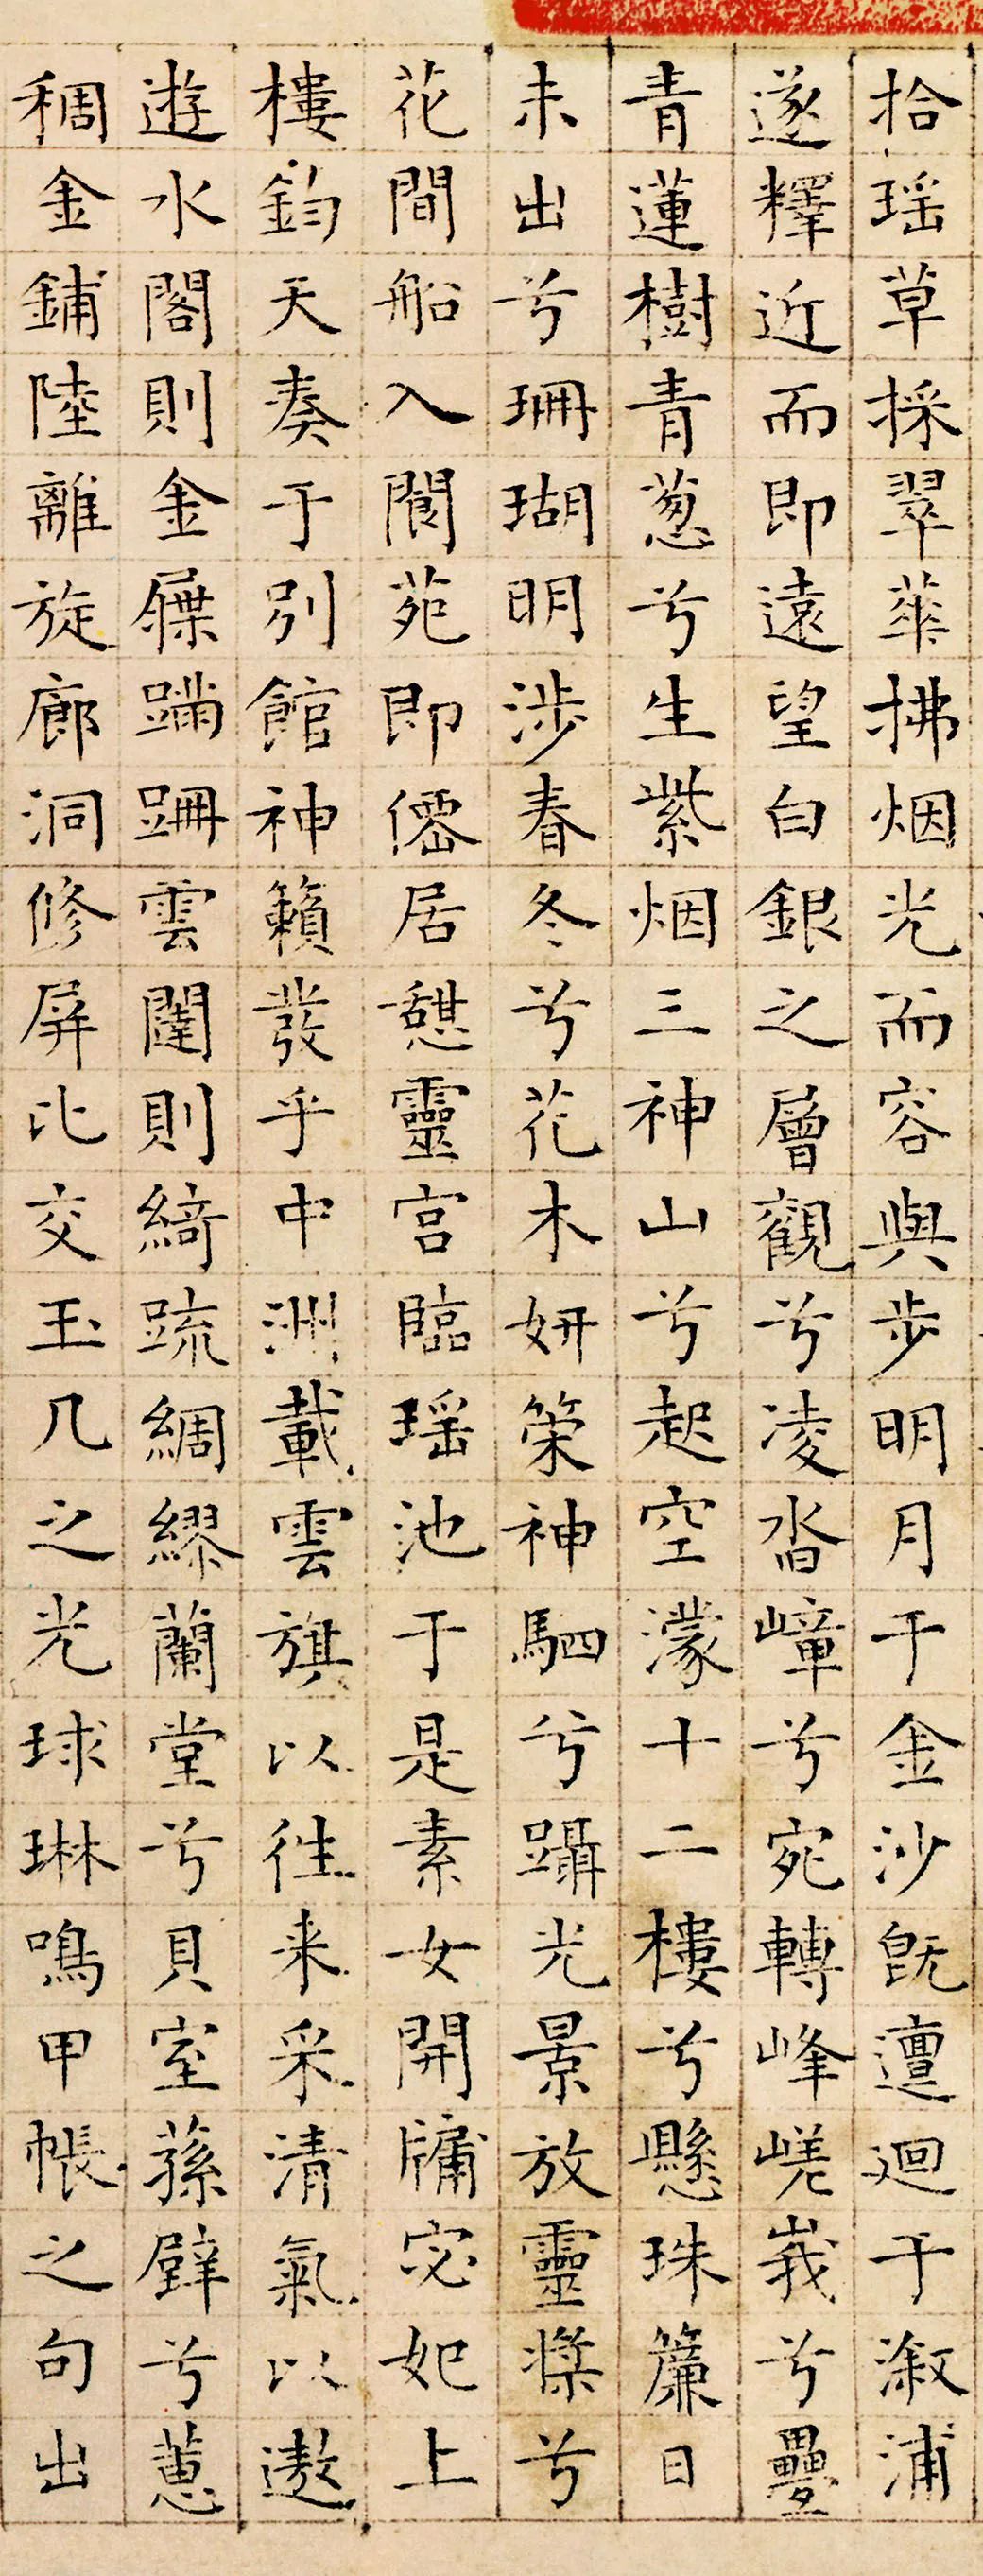 拾瑶草採翠華拂烟光而容與步明月于金沙既邅迴于溆浦
遂釋近而即遠望白銀之層觀兮凌沓嶂兮宛轉峰嵯峩兮疊
青蓮樹青葱兮生紫烟三神山兮起空濛十二樓兮懸珠簾日
未出兮珊瑚明涉春冬兮花木妍策神駟兮躡光景放靈槳兮
花間船入閬苑即僊居憩靈宮臨瑶池于是素女開牗宓妃上
樓鈞天奏于別館神籟發乎中洲載雲旗以徃来采清氣以遨
遊水閣則金屧蹣跚雲闥則綺疏綢繆蘭堂兮貝室蓀壁兮蕙
稠金鋪陸離旋廊洞修屏比交玉几之光球琳鳴甲帳之句出